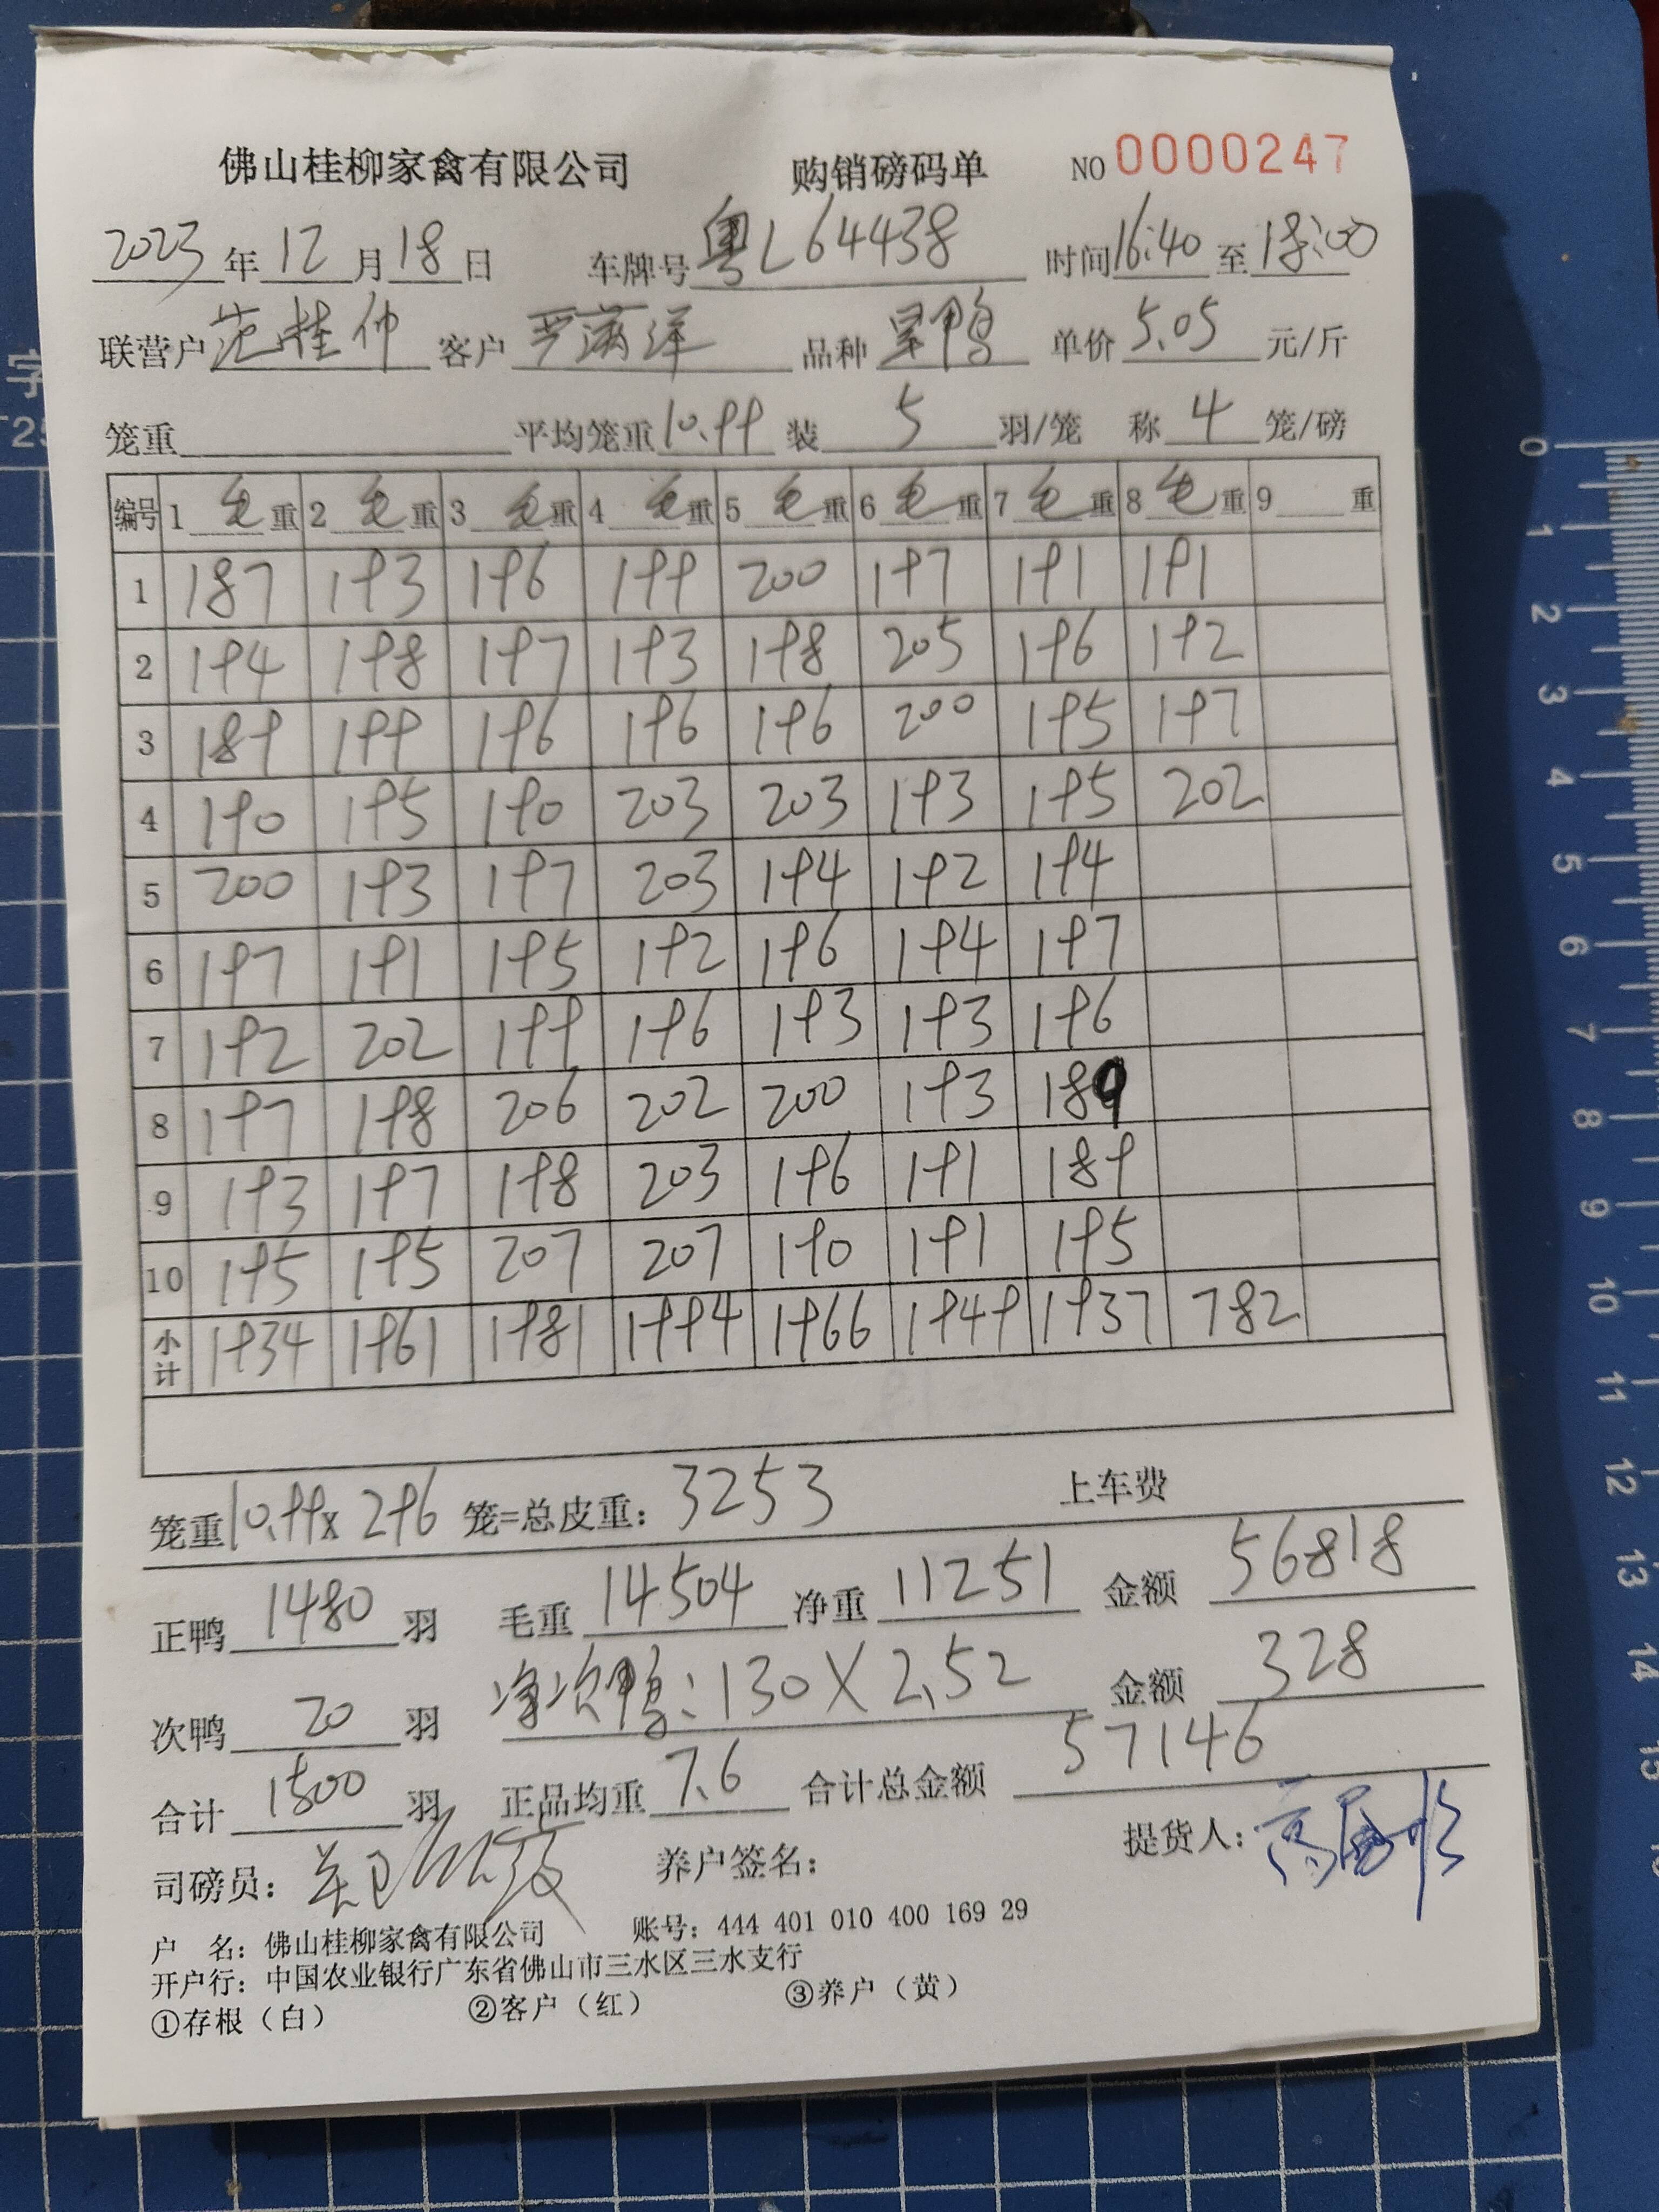 佛山桂柳家禽有限公司 购销磅码单 NO 0000247
2023年12月18日 车牌号 粤L64438 时间16:40至18:00
联营户 范桂仲 客户 满洋 品种 鸭 单价 5.05 元/斤
笼重 平均笼重 10.99 装 5 羽/笼 称 4 笼/磅
编号 1 毛重 2 毛重 3 毛重 4 毛重 5 毛重 6 毛重 7 毛重 8 毛重 9 重
1 187 193 196 199 200 197 191 191
2 194 198 197 193 198 205 196 192
3 189 199 196 196 196 200 195 197
4 190 195 190 203 203 193 195 202
5 200 193 197 203 194 192 194
6 197 191 195 192 196 194 197
7 192 202 199 196 193 193 196
8 197 198 206 202 200 193 189
9 193 197 198 203 196 191 189
10 195 195 207 207 190 191 195
小计 1934 1961 1981 1994 1966 1949 1937 782
笼重 10.99 x 296 笼=总皮重: 3253 上车费
正鸭 1480 羽 毛重 14504 净重 11251 金额 56818
次鸭 20 羽 净次鸭:130X2.52 金额 328
合计 1500 羽 正品均重 7.6 合计总金额 57146
司磅员: 养户签名: 提货人:
户 名: 佛山桂柳家禽有限公司 账号: 444 401 010 400 169 29
开户行: 中国农业银行广东省佛山市三水区三水支行
①存根（白） ②客户（红） ③养户（黄）
字
0
1
2
3
4
5
6
7
8
9
10
11
12
13
14
15